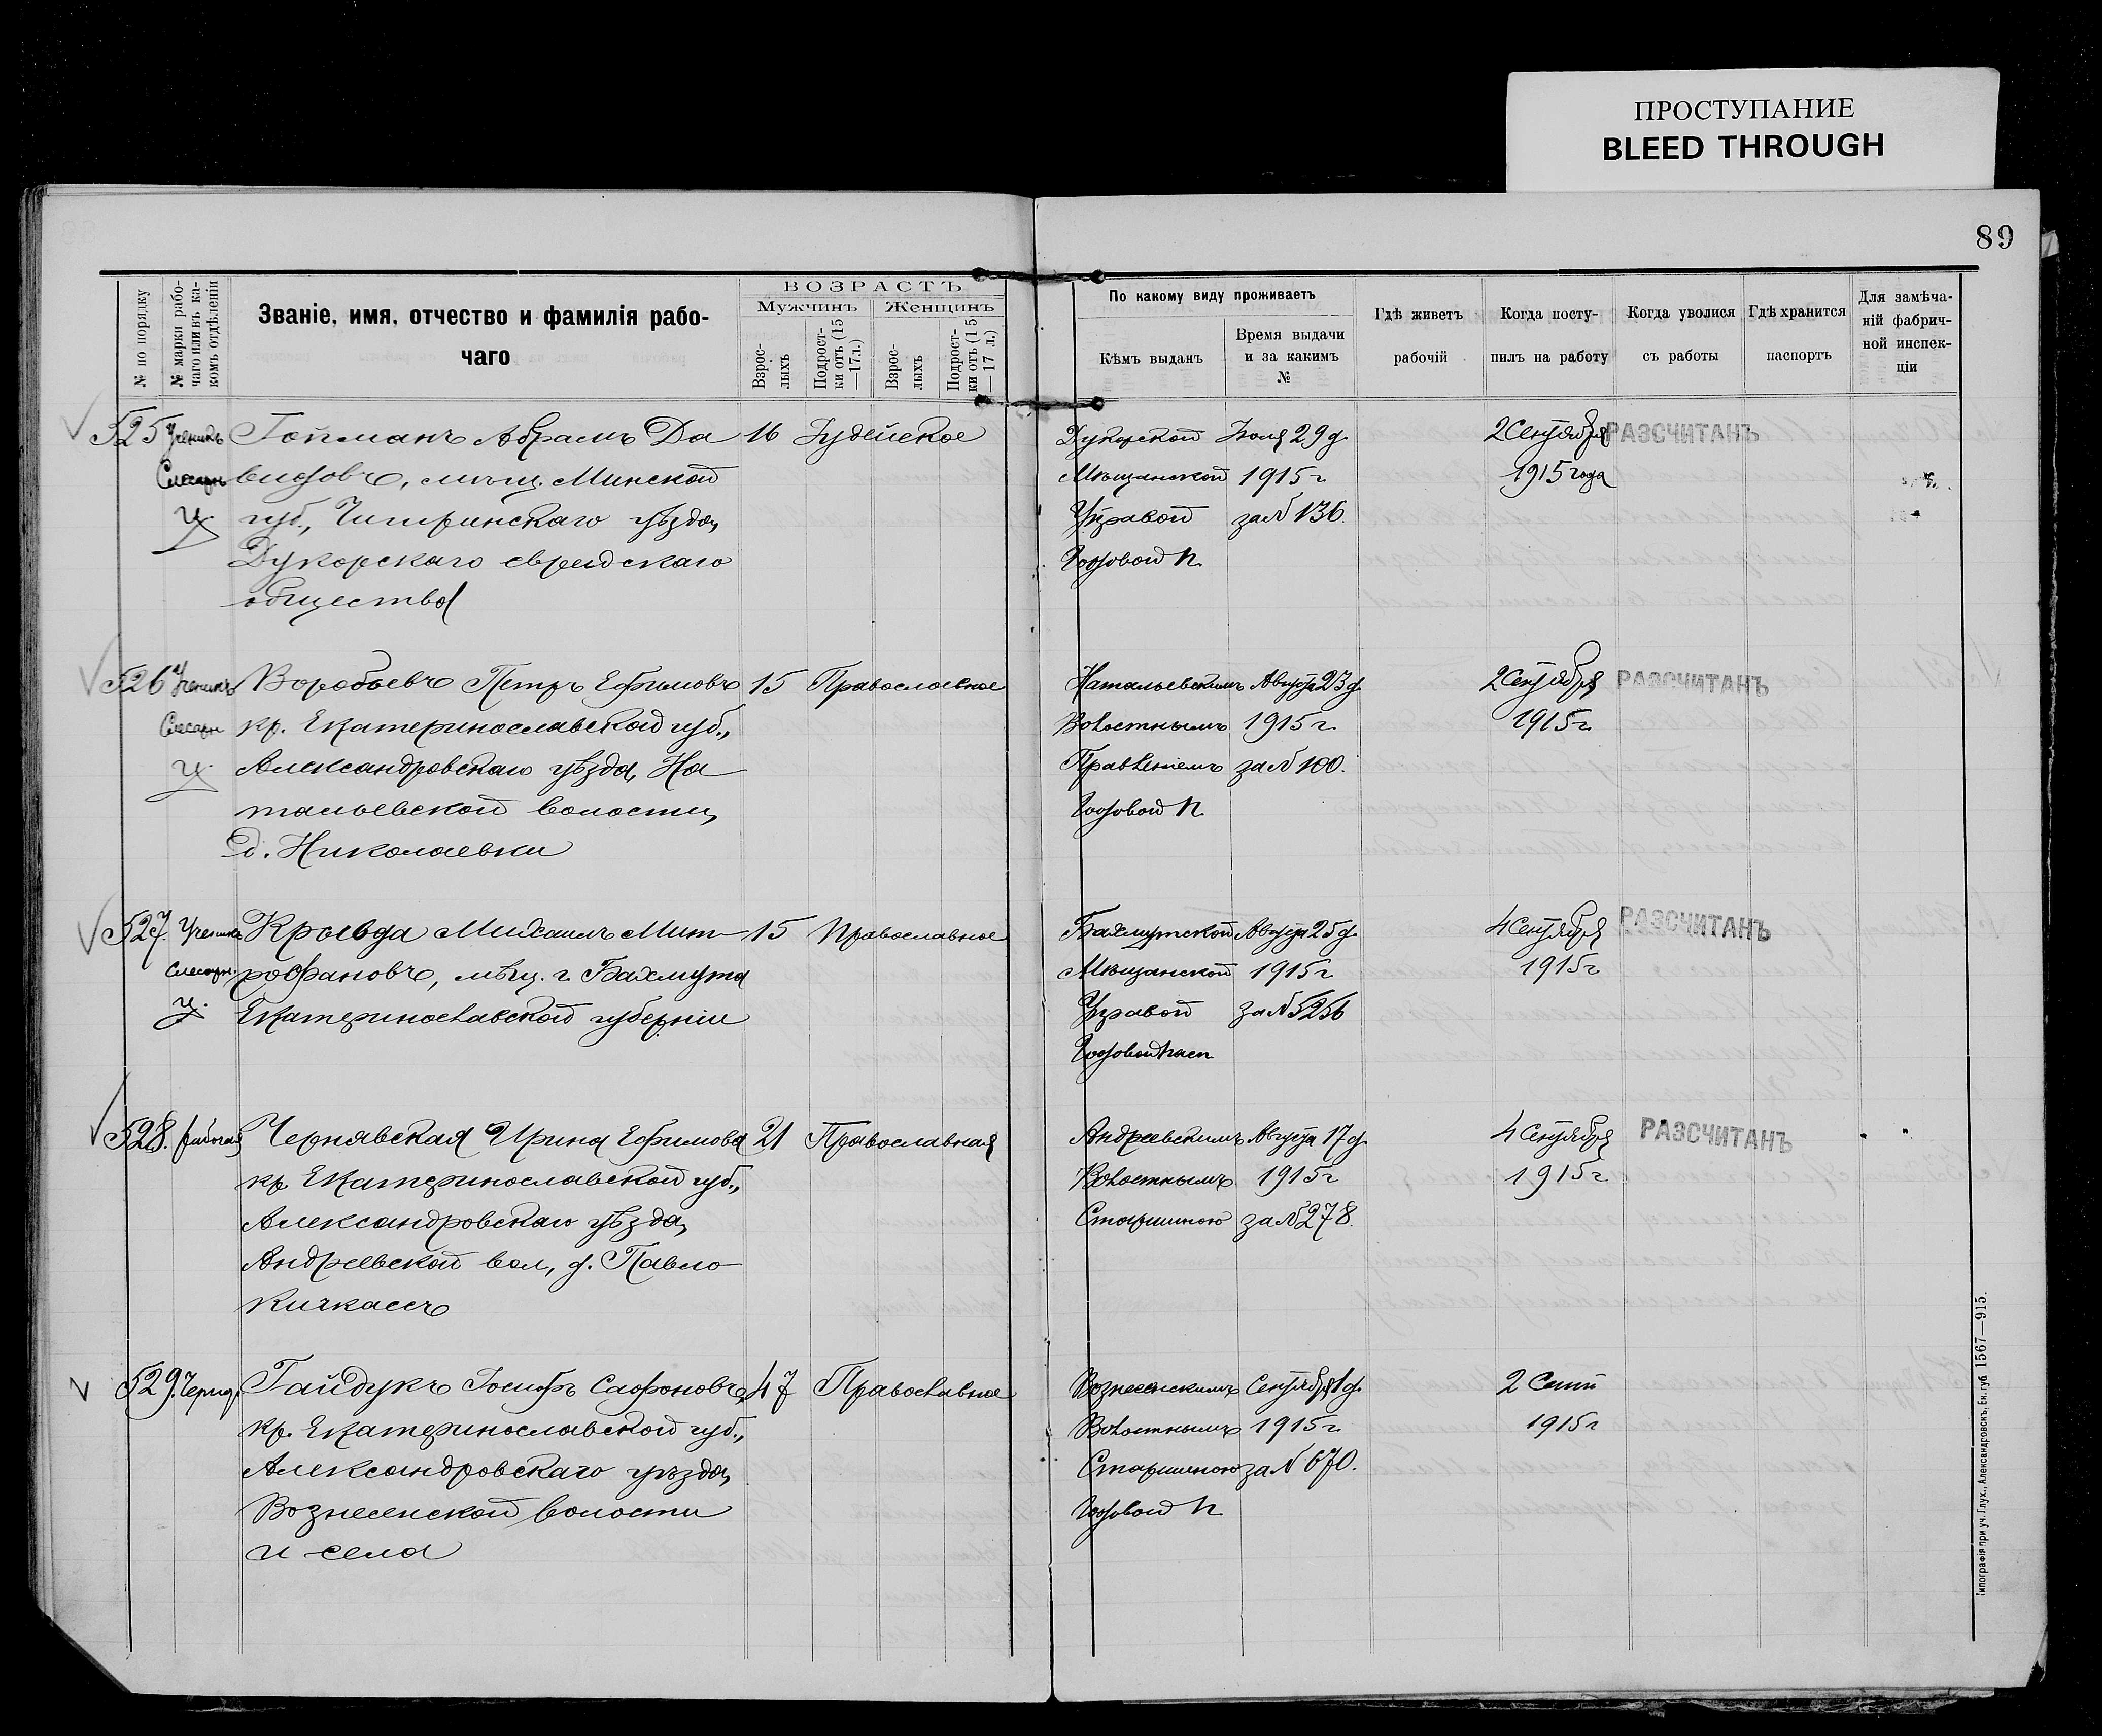 ПРОСТУПАНИЕ
BLEED THROUGH
89
№ по порядку
№ марки рабо-
чаго или въ ка-
комъ отдѣленіи
Званіе, имя, отчество и фамилія рабо-
чаго
ВОЗРАСТЪ
Мужчинъ
Женщинъ
Взрос-
лыхъ
Подрост-
ки отъ (15
—17 л.)
Взрос-
лыхъ
Подрост-
ки отъ (15
—17 л.)
По какому виду проживаетъ
Кѣмъ выданъ
Время выдачи
и за какимъ
№
Гдѣ живетъ
рабочій
Когда посту-
пилъ на работу
Когда уволися
съ работы
Гдѣ хранится
паспортъ
Для замѣча-
ній фабрич-
ной инспек-
ціи
525 Ученикъ Гойманъ Абрамъ Да 16 Іудейское Дукорской Іюля 29 д. 2 Сентября РАЗСЧИТАНЪ
Слесарн видовъ, мѣщ. Минской Мѣщанской 1915 г 1915 года
у. губ., Уѣзда, Управой за № 136.
Дукорскаго еврейскаго Годовой п
общества
526 Ученикъ Воробьевъ Петръ Ефимовъ 15 Православное Натальевскимъ Августа 23 д. 2 Сентября РАЗСЧИТАНЪ
Слесарн кр. Екатеринославской губ., Волостнымъ 1915 г. 1915 г.
у. Александровскаго уѣзда, На Правленіемъ за № 100.
тальевской волости, Годовой п
д. Николаевки
527. Ученикъ Крывда Михаилъ Мит- 15 Православное Бахмутской Августа 25 д. 4 Сентября РАЗСЧИТАНЪ
Слесарн. рофановъ, мѣщ. г. Бахмута Мѣщанской 1915 г 1915 г
у. Екатеринославской губерніи Управой за № 5256
Годовой пасп
528. рабочая Чернявская Ирина Ефимова 21 Православная Андреевскимъ Августа 17 д. 4 Сентября РАЗСЧИТАНЪ
кр. Екатеринославской губ., Волостнымъ 1915 г 1915 г
Александровскаго уѣзда, Старшиною за № 278.
Андреевской вол., д. Павло
Кичкассъ
529. Гайдукъ Іосифъ Сафоновъ, 47 Православное Вознесенскимъ Сентября 1 д. 2 Сент
кр. Екатеринославской губ., Волостнымъ 1915 г. 1915 г
Александровскаго уѣзда, Старшиною за № 670.
Вознесенской волости Годовой п
и села
Типографія при уч. Глух., Александровскъ, Ек. губ 1567—915.